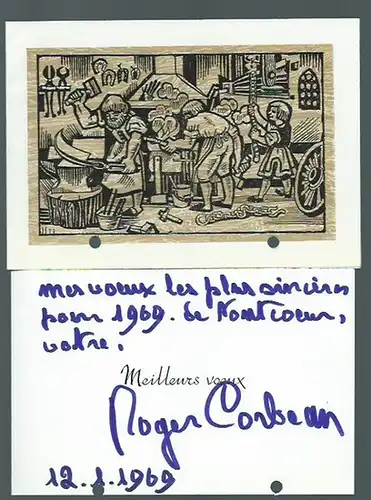 mes voeux les plus sincères
pour 1969. de tout coeur,
votre,
Meilleurs voeux
Roger Corbeau
12.1.1969